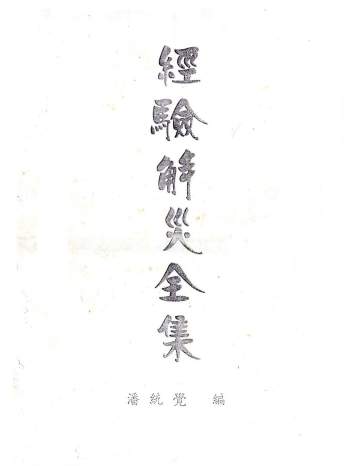 經驗解災全集
潘統覺 編